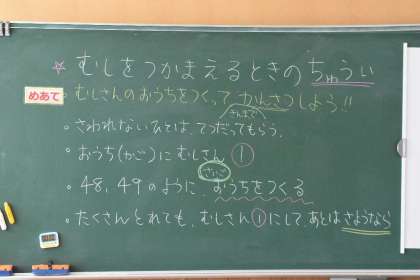 ☆むしをつかまえるときのちゅうい
めあて むしさんのおうちをつくって かんさつしよう!!
さんまで
・さわれないひとは、てつだってもらう。
・おうち(かご)にむしさん ①
さいご
・48,49のように、おうちをつくる
・たくさんとれても、むしさん①にして、あとはさようなら